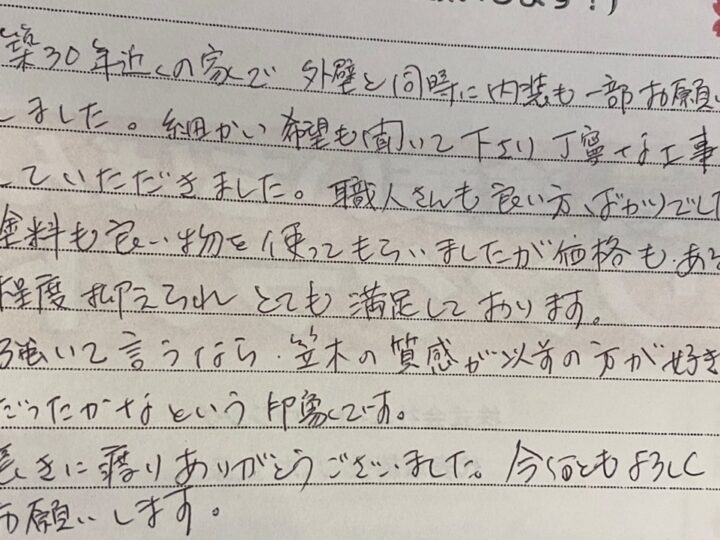 します！）
築30年近くの家で 外壁と同時に内装も一部お願い
しました。細かい希望も聞いて下さり丁寧な工事
していただきました。職人さんも良い方ばかりでした
塗料も良い物を使ってもらいましたが価格もある
程度抑えられとても満足しております。
強いて言うなら、笠木の質感が以前の方が好き
だったかなという印象です。
長きに渡りありがとうございました。今後ともよろしく
お願いします。